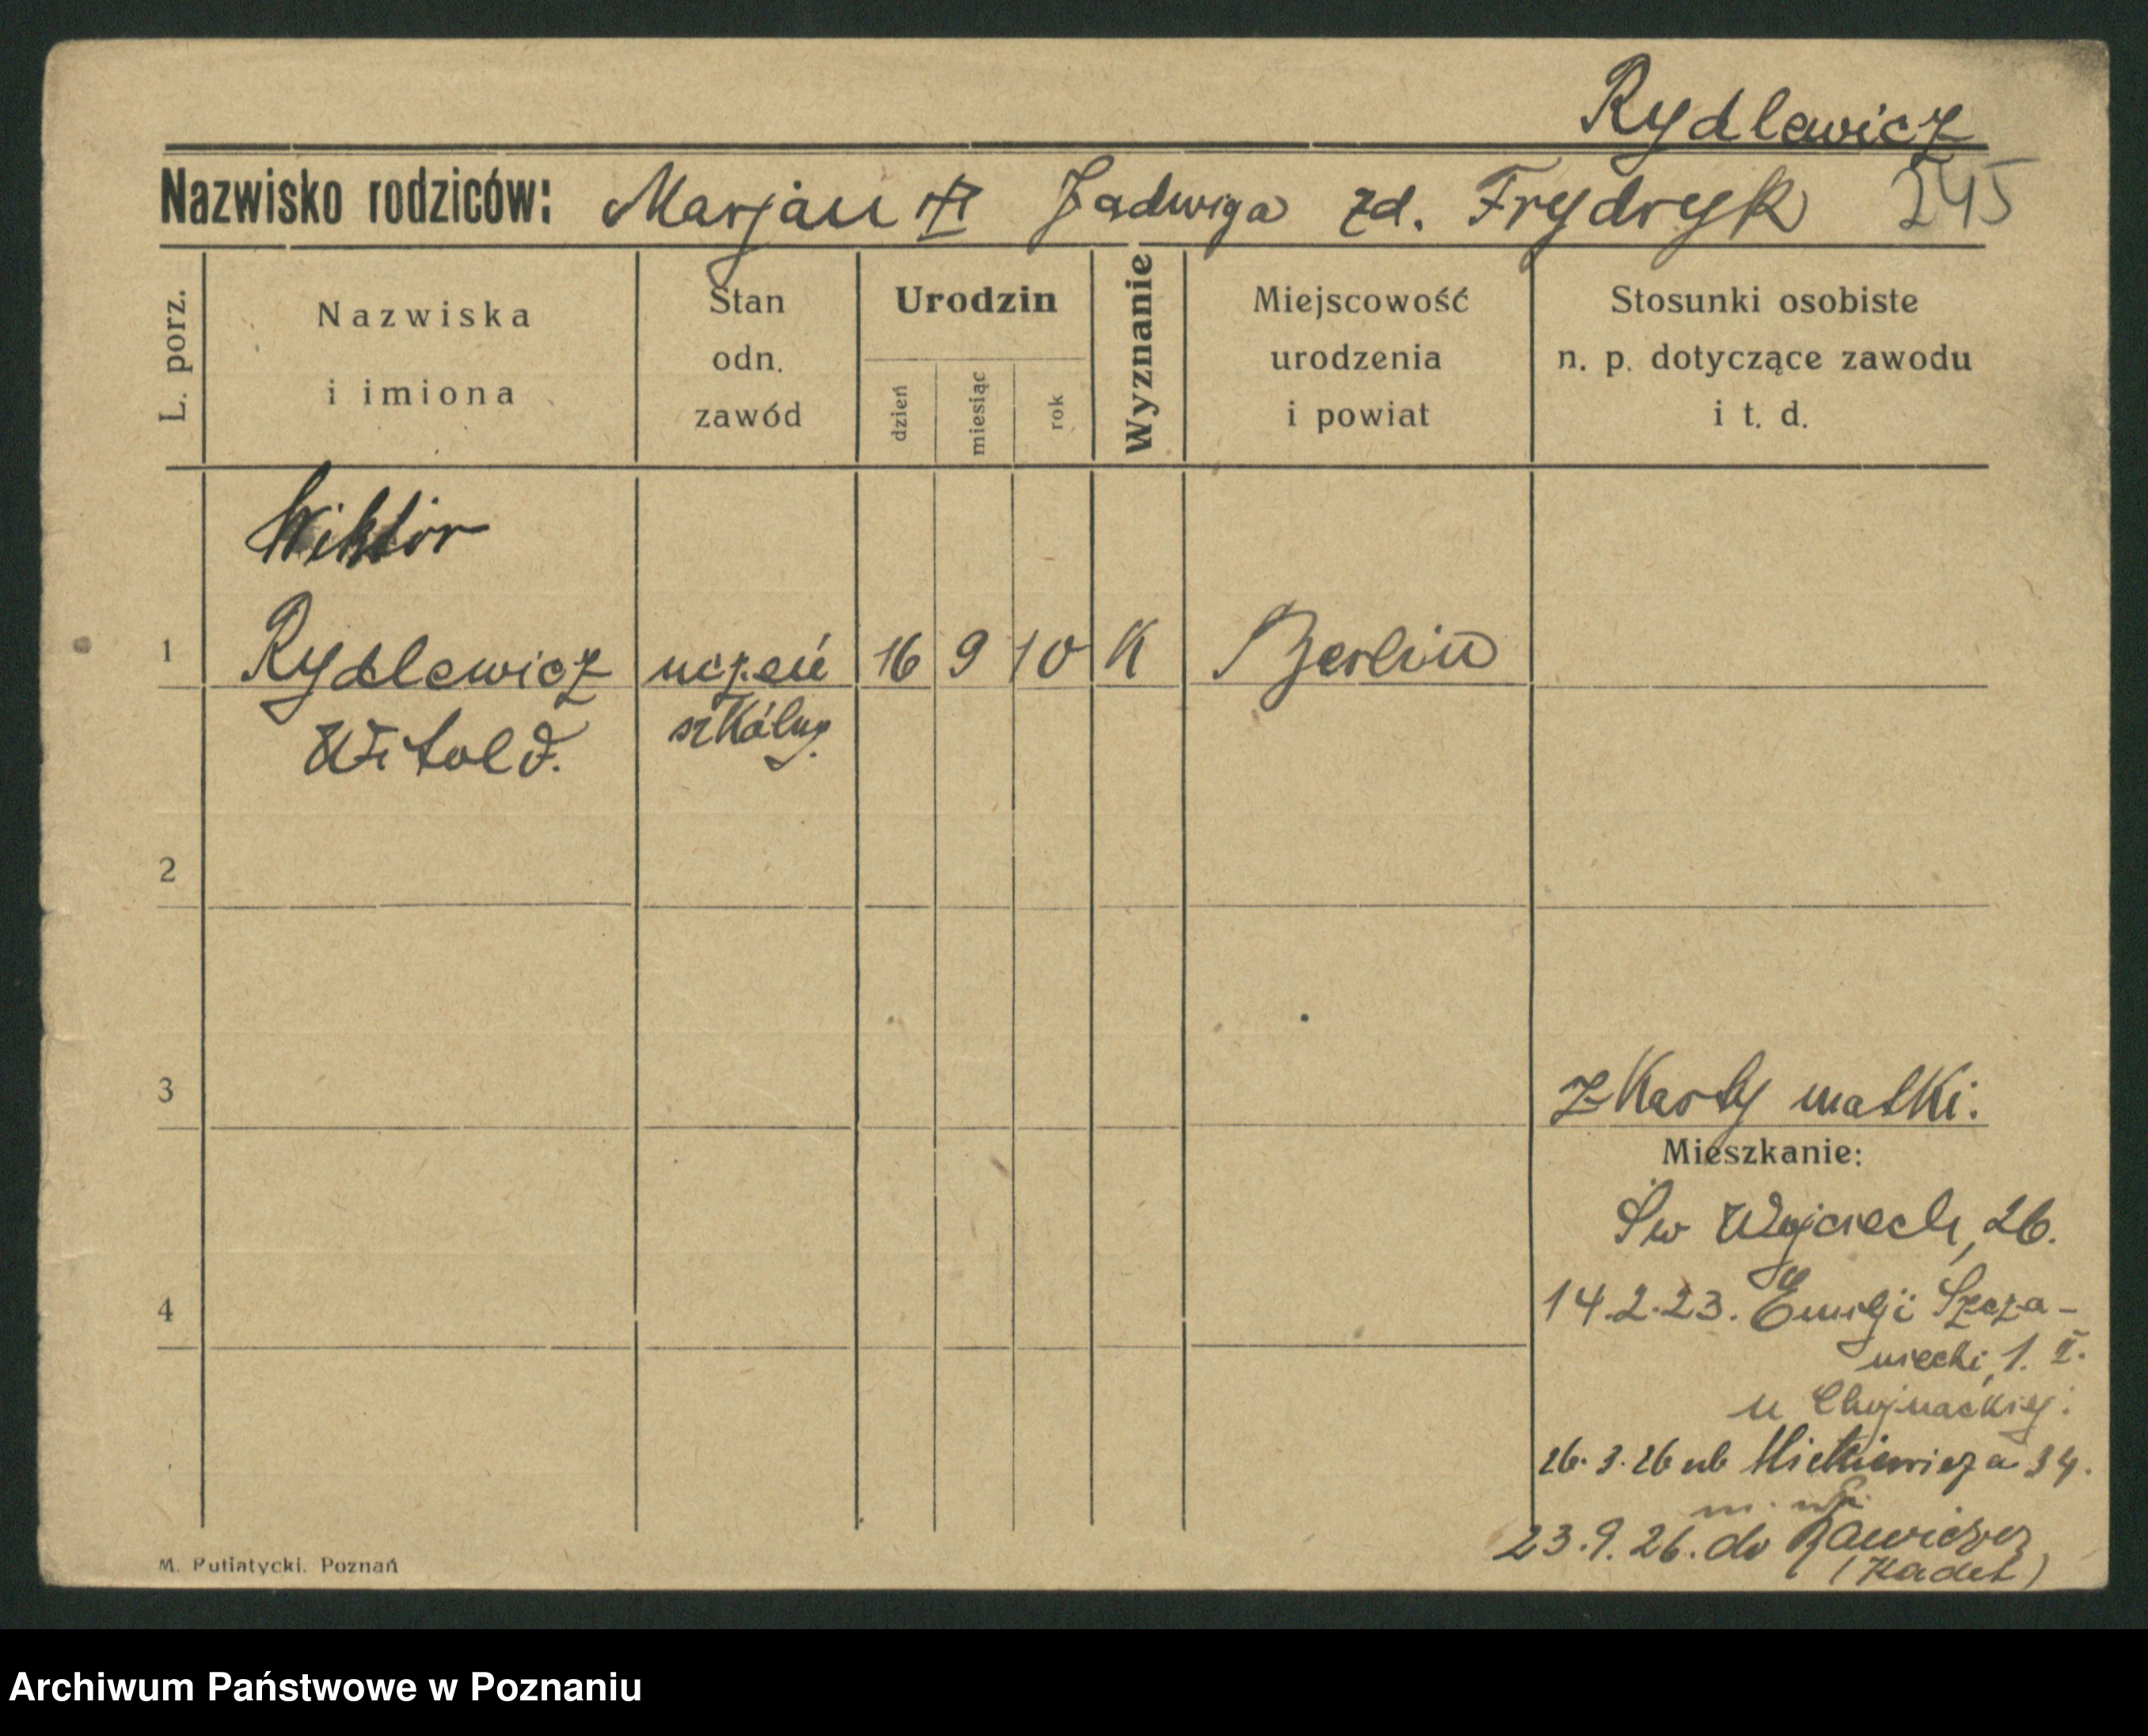 Rydlewicz
Nazwisko rodziców: Marjan Jadwiga zd. Frydryk 245
L. porz.
Nazwiska
i imiona
Stan
odn.
zawód
Urodzin
dzień
miesiąc
rok
Wyznanie
Miejscowość
urodzenia
i powiat
Stosunki osobiste
n. p. dotyczące zawodu
i t. d.
Wiktor
1 Rydlewicz uczeń 16 9 10 K Berlin
Witold. szkolny.
2
3
z Karty matki.
Mieszkanie:
Św Wojciech, 26.
4
14.2.23. Emilji Szcza-
niecki, 1. II.
u Chojnackiej.
26.3.26 ul Mickiewicza 34.
23.9.26. do Rawicza
(Kadet)
M. Putiatycki. Poznań
Archiwum Państwowe w Poznaniu